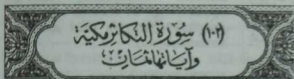 (١٠٢) سُورَةُ التَّكَاثُرِ مَكِّيَّة
وَآيَاتُهَا ثَمَانٍ